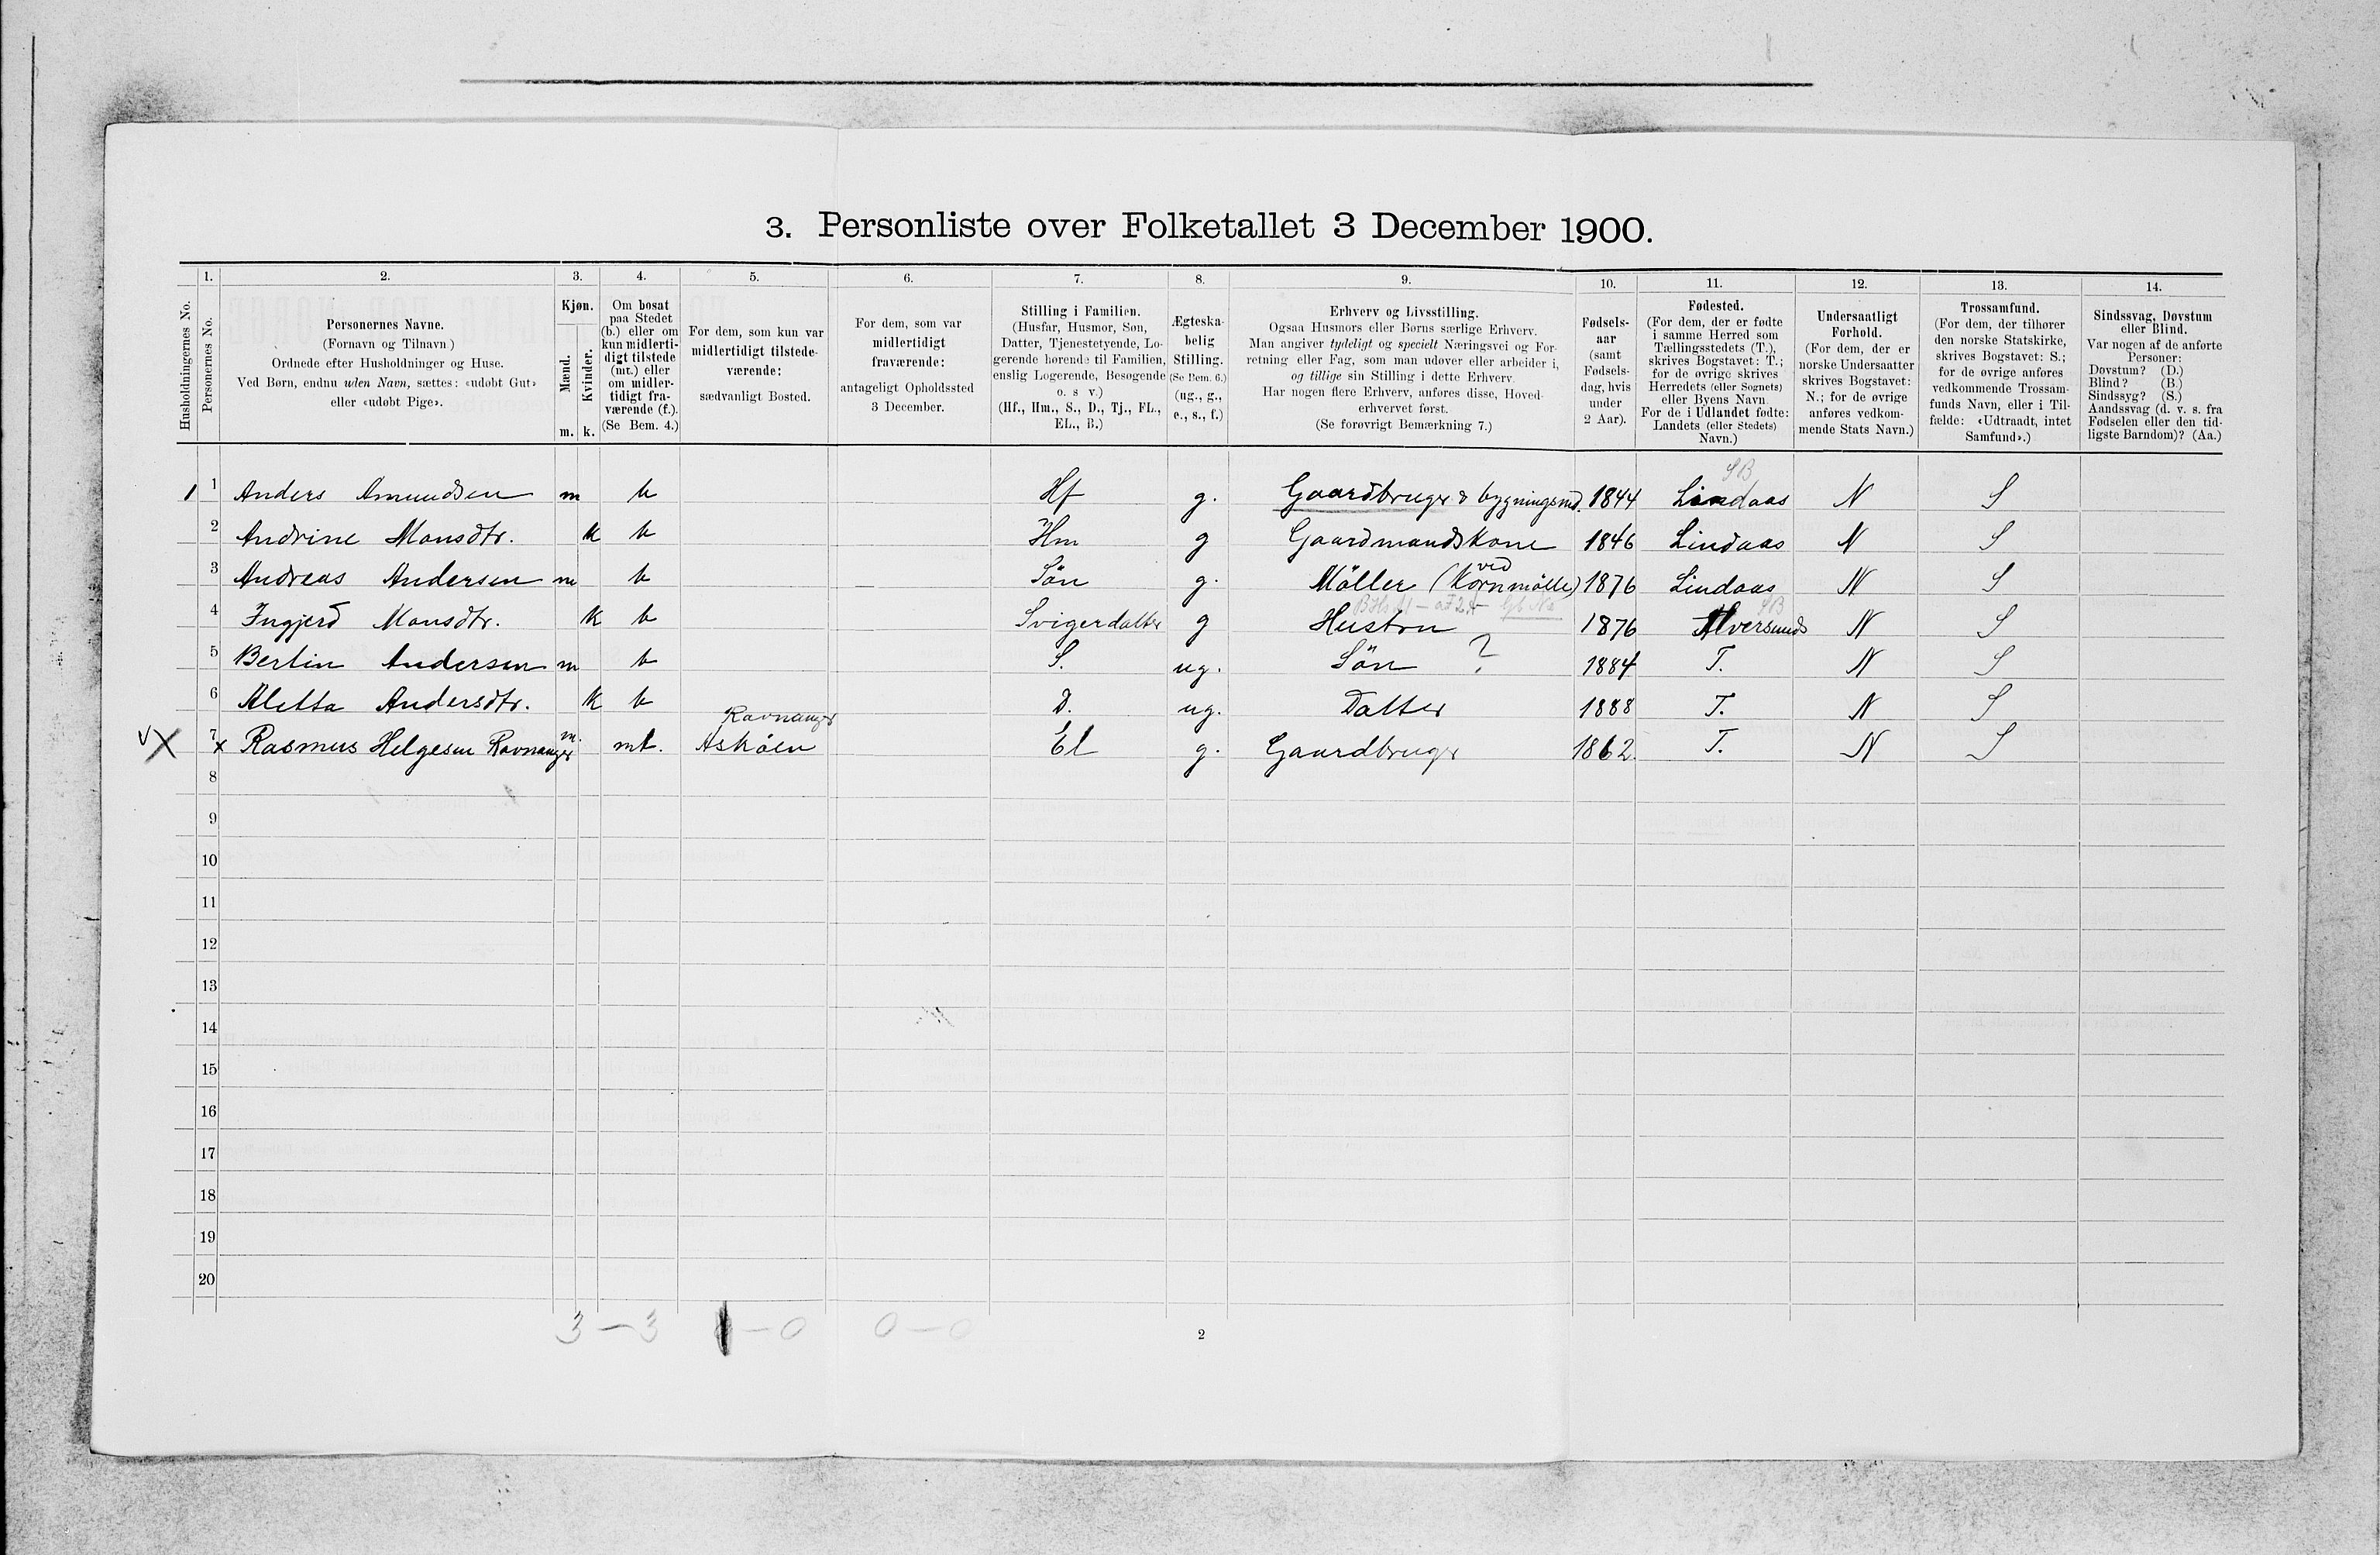 3. Personliste over Folketallet 3 December 1900.
1. 2. 3. 4. 5. 6. 7. 8. 9. 10. 11. 12. 13. 14.
Husholdningernes No.
Personernes No.
Personernes Navne.
(Fornavn og Tilnavn.)
Ordnede efter Husholdninger og Huse.
Ved Børn, endnu uden Navn, sættes: «udøbt Gut»
eller «udøbt Pige».
Kjøn.
Mænd.
Kvinder.
m. k.
Om bosat
paa Stedet
(b.) eller om
kun midlerti-
digt tilstede
(mt.) eller
om midler-
tidigt fra-
værende (f.).
(Se Bem. 4.)
For dem, som kun var
midlertidigt tilstede-
værende:
sædvanligt Bosted.
For dem, som var
midlertidigt
fraværende:
antageligt Opholdssted
3 December.
Stilling i Familien.
(Husfar, Husmor, Søn,
Datter, Tjenestetyende, Lo-
gerende hørende til Familien,
enslig Logerende, Besøgende
o. s v.)
(Hf., Hm., S., D., Tj., FL.,
EL., B.)
Ægteska-
belig
Stilling.
(Se Bem. 6.)
(ug., g.,
e., s., f.)
Erhverv og Livsstilling.
Ogsaa Husmors eller Børns særlige Erhverv.
Man angiver tydeligt og specielt Næringsvei og For-
retning eller Fag, som man udøver eller arbeider i,
og tillige sin Stilling i dette Erhverv.
Har nogen flere Erhverv, anføres disse, Hoved-
erhvervet først.
(Se forøvrigt Bemærkning 7.)
Fødsels-
aar
(samt
Fødsels-
dag, hvis
under
2 Aar).
Fødested.
(For dem, der er fødte
i samme Herred som
Tællingsstedets (T.),
skrives Bogstavet: T.;
for de øvrige skrives
Herredets (eller Sognets)
eller Byens Navn.
For de i Udlandet fødte:
Landets (eller Stedets)
Navn.)
Undersaatligt
Forhold.
(For dem, der er
norske Undersaatter
skrives Bogstavet:
N.; for de øvrige
anføres vedkom-
mende Stats Navn.)
Trossamfund.
(For dem, der tilhører
den norske Statskirke,
skrives Bogstavet: S.;
for de øvrige anføres
vedkommende Trossam-
funds Navn, eller i Til-
fælde: «Udtraadt, intet
Samfund».)
Sindssvag, Døvstum
eller Blind.
Var nogen af de anførte
Personer:
Døvstum? (D.)
Blind? (B.)
Sindssyg? (S.)
Aandssvag (d. v. s. fra
Fødselen eller den tid-
ligste Barndom)? (Aa.)
SB
1 1 Anders Amundsen m b Hf g. Gaardbruger & bygningsmd. 1844 Lindaas N S
2 Andrine Monsdtr. k b Hm g Gaardmandskone 1846 Lindaas N S
ved
3 Andreas Andersen m b Sön g. Möller (Kornmölle) 1876 Lindaas N S
SB
4 Ingjerd Monsdtr. k b Svigerdatter g Hustru 1876 Alversunds N S
5 Bertin Andersen m b S. ug. Sön ? 1884 T. N S
6 Aletta Andersdtr. k b D. ug. Datter 1888 T. N S
Ravnanger
v X 7 x Rasmus Helgesen Ravnanger m. mt. Asköen El g. Gaardbruger 1862. T. N S
8
9
10
11
12
13
14
15
16
17
18
19
20
3 – 3 1 – 0 0 – 0
2